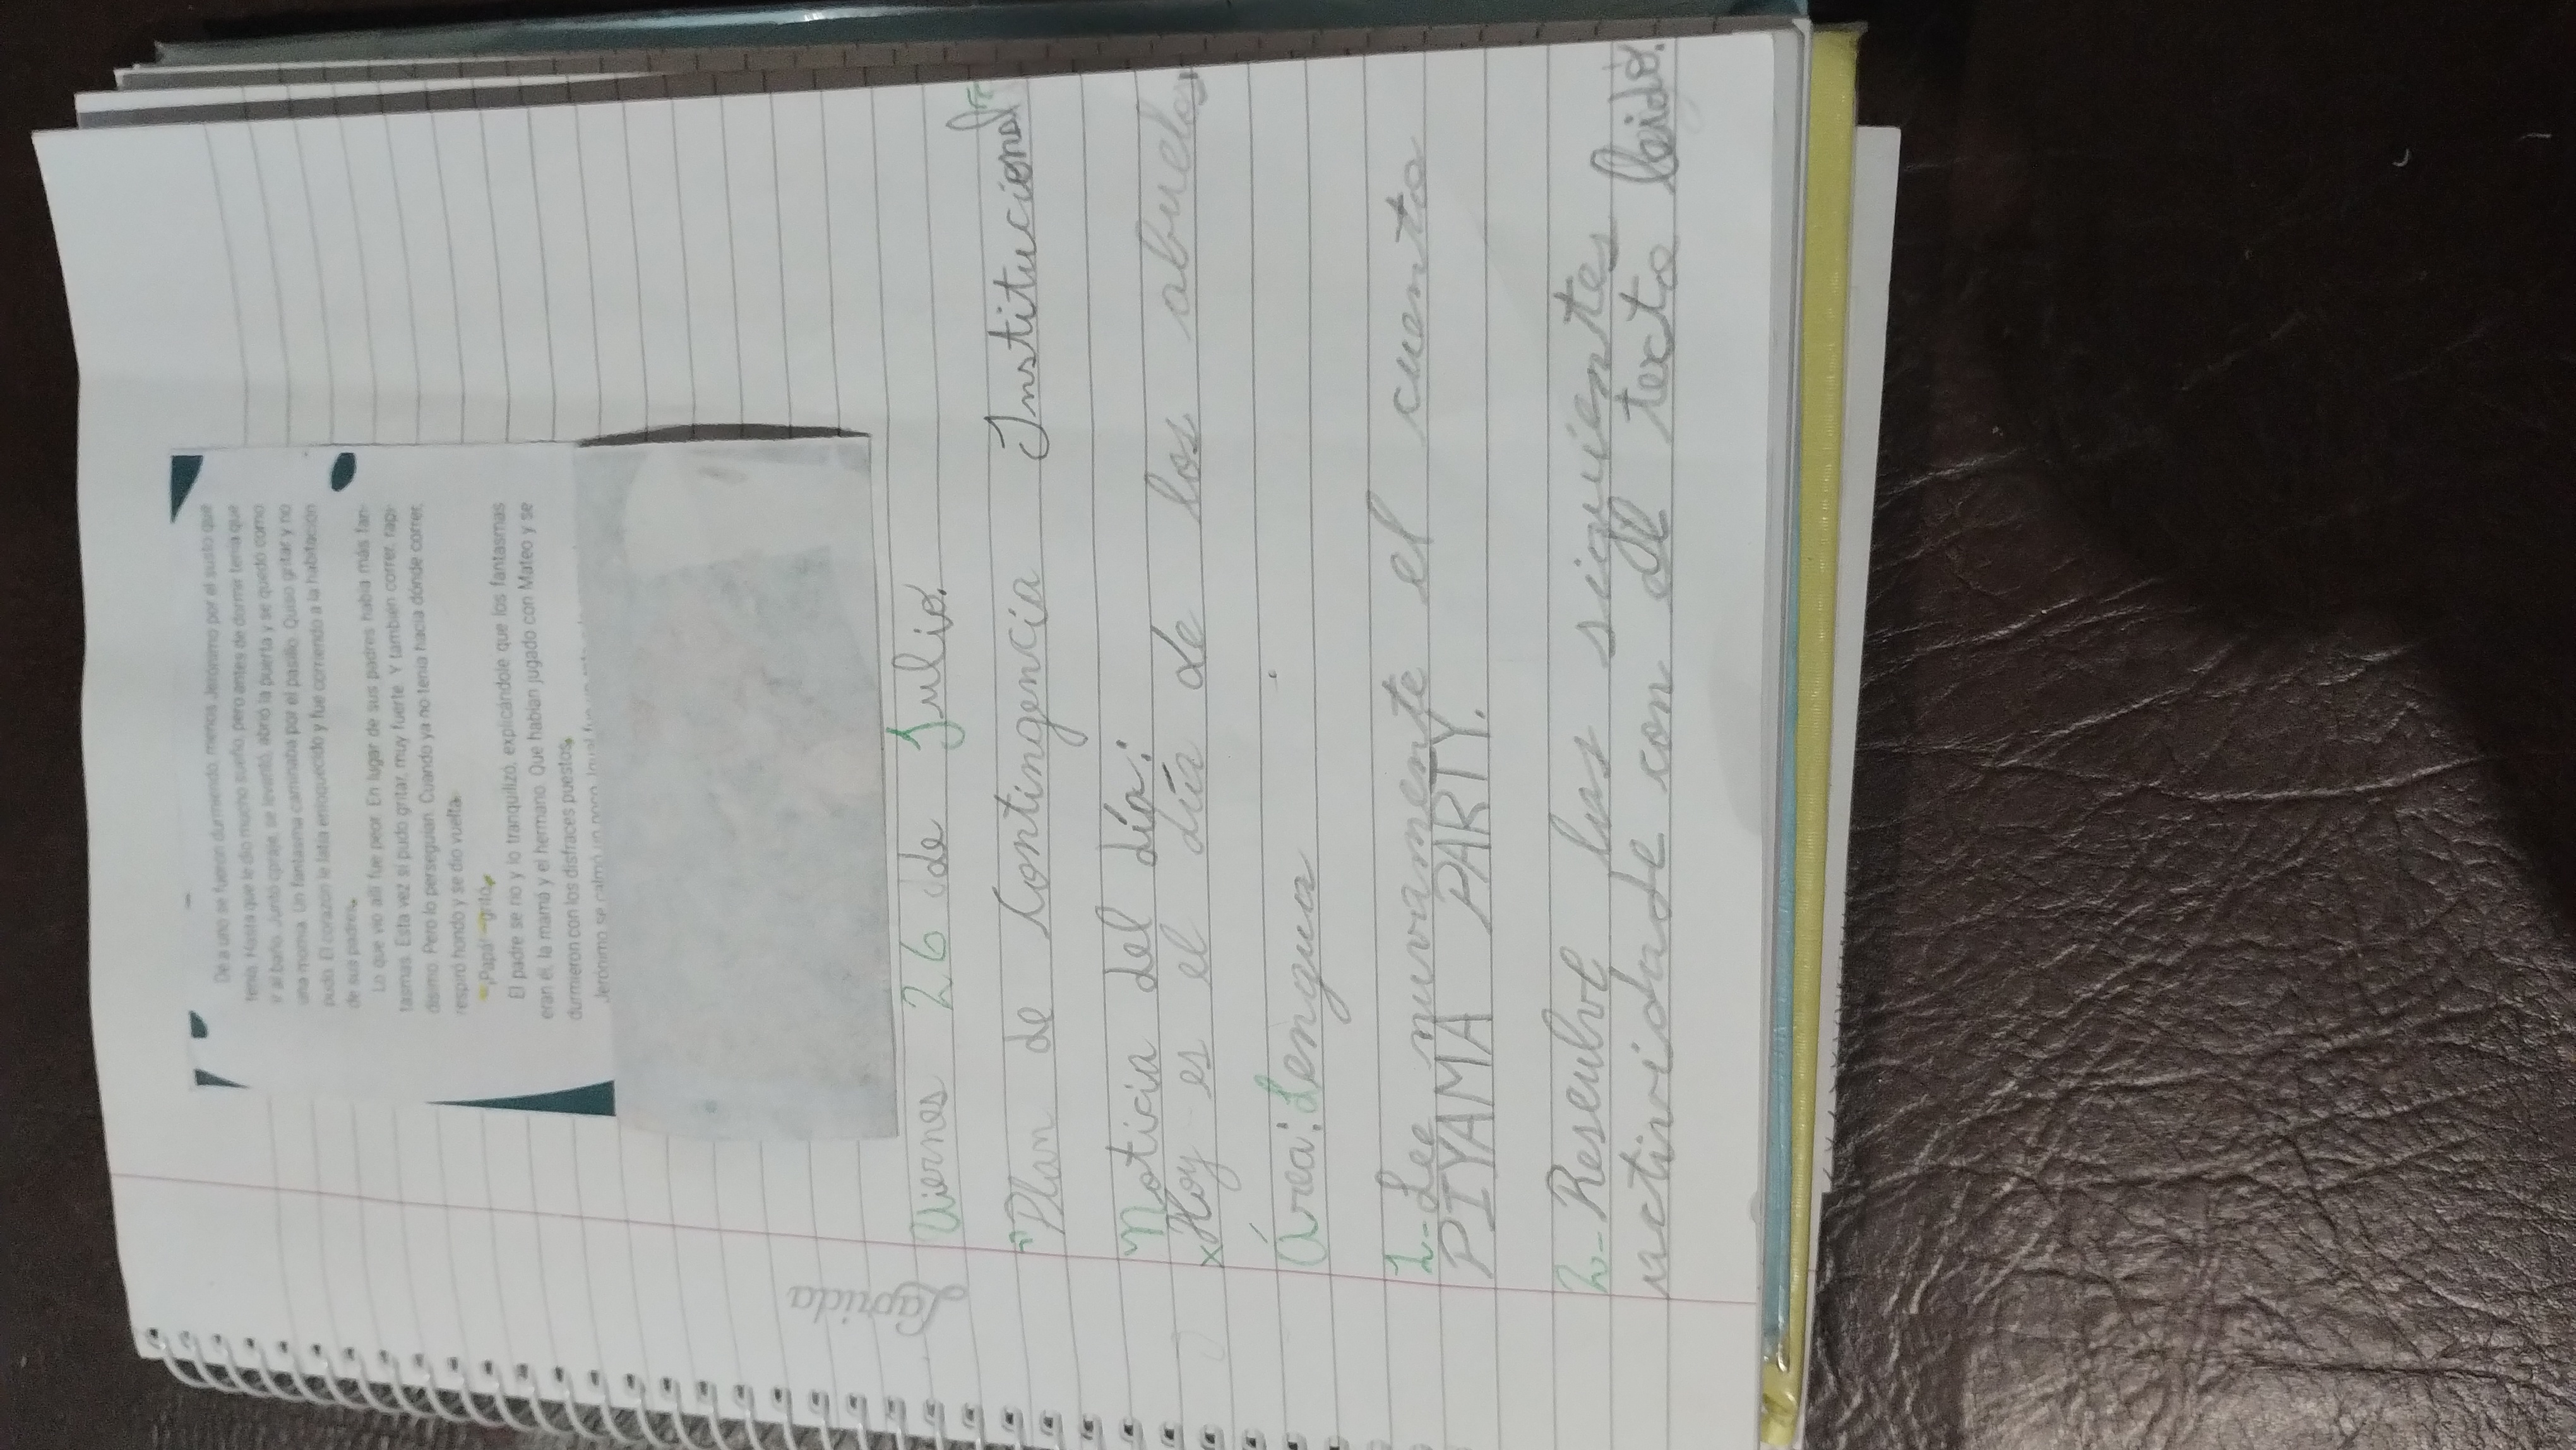 De a uno se fueron durmiendo, menos Jerónimo por el susto que
tenía. Hasta que le dio mucho sueño, pero antes de dormir tenía que
ir al baño. Juntó coraje, se levantó, abrió la puerta y se quedó como
una momia. Un fantasma caminaba por el pasillo. Quiso gritar y no
pudo. El corazón le latía enloquecido y fue corriendo a la habitación
de sus padres.
Lo que vio allí fue peor. En lugar de sus padres había más fan-
tasmas. Esta vez sí pudo gritar, muy fuerte. Y también correr, rapi-
dísimo. Pero lo perseguían. Cuando ya no tenía hacia dónde correr,
respiró hondo y se dio vuelta.
—¡Papá! —gritó.
El padre se rio y lo tranquilizó, explicándole que los fantasmas
eran él, la mamá y el hermano. Que habían jugado con Mateo y se
durmieron con los disfraces puestos.
Jerónimo se calmó un poco. Igual fue
Laprida
Viernes 26 de Julio.
"Plan de Contingencia Institucional"
Noticia del día:
x Hoy es el día de los abuelos
Área: Lengua
1-Lee nuvamente el cuento
PIYAMA PARTY.
2-Resenlve las siguientes
actividade con el texto leido.